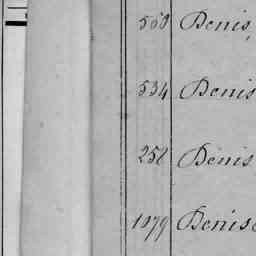 560 Denis,
534 Denis
252 Denis
1079 Denise